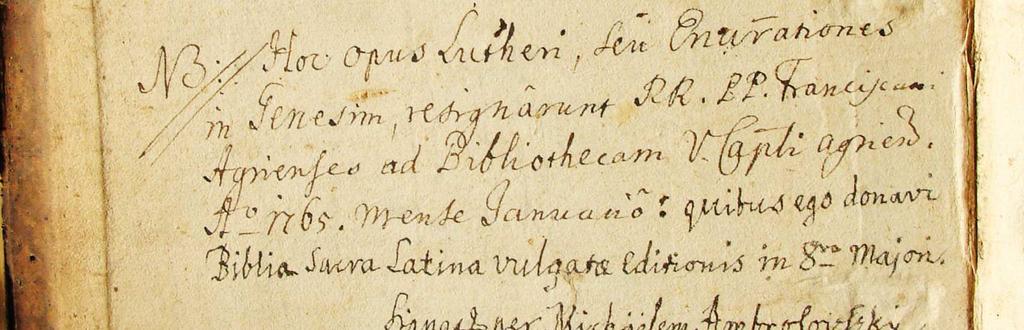 NB. // Hoc opus Lutheri, seu Enarrationes
in Genesim, resignârunt RR. PP. Franciscani
Agrienses ad Bibliothecam V. Capli agrien.
Aº 1765. mense Januariô: quibus ego donavi
Biblia Sacra Latina vulgatæ editionis in 8vo majori.
Signat per Michäelem Ambrosovszky